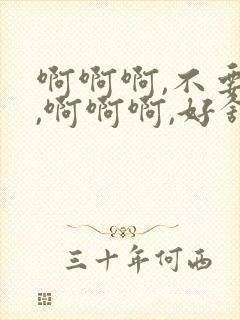 啊啊啊,不要
,啊啊啊,好舒
三十年何西